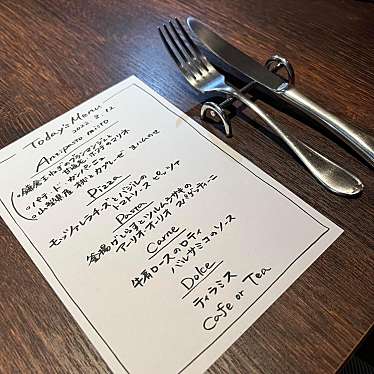 Today's Menu
2022. 2. 12
Antipasto misto
パテ・ド・カンパーニュ
Pizza
モッツァレラチーズとバジルの
トマトソース ピッツァ
Pasta
釜揚げしらすとツルムラサキの
アーリオ・オーリオ スパゲッティーニ
Carne
牛肩ロースのロティ
バルサミコのソース
Dolce
ティラミス
Cafe or Tea